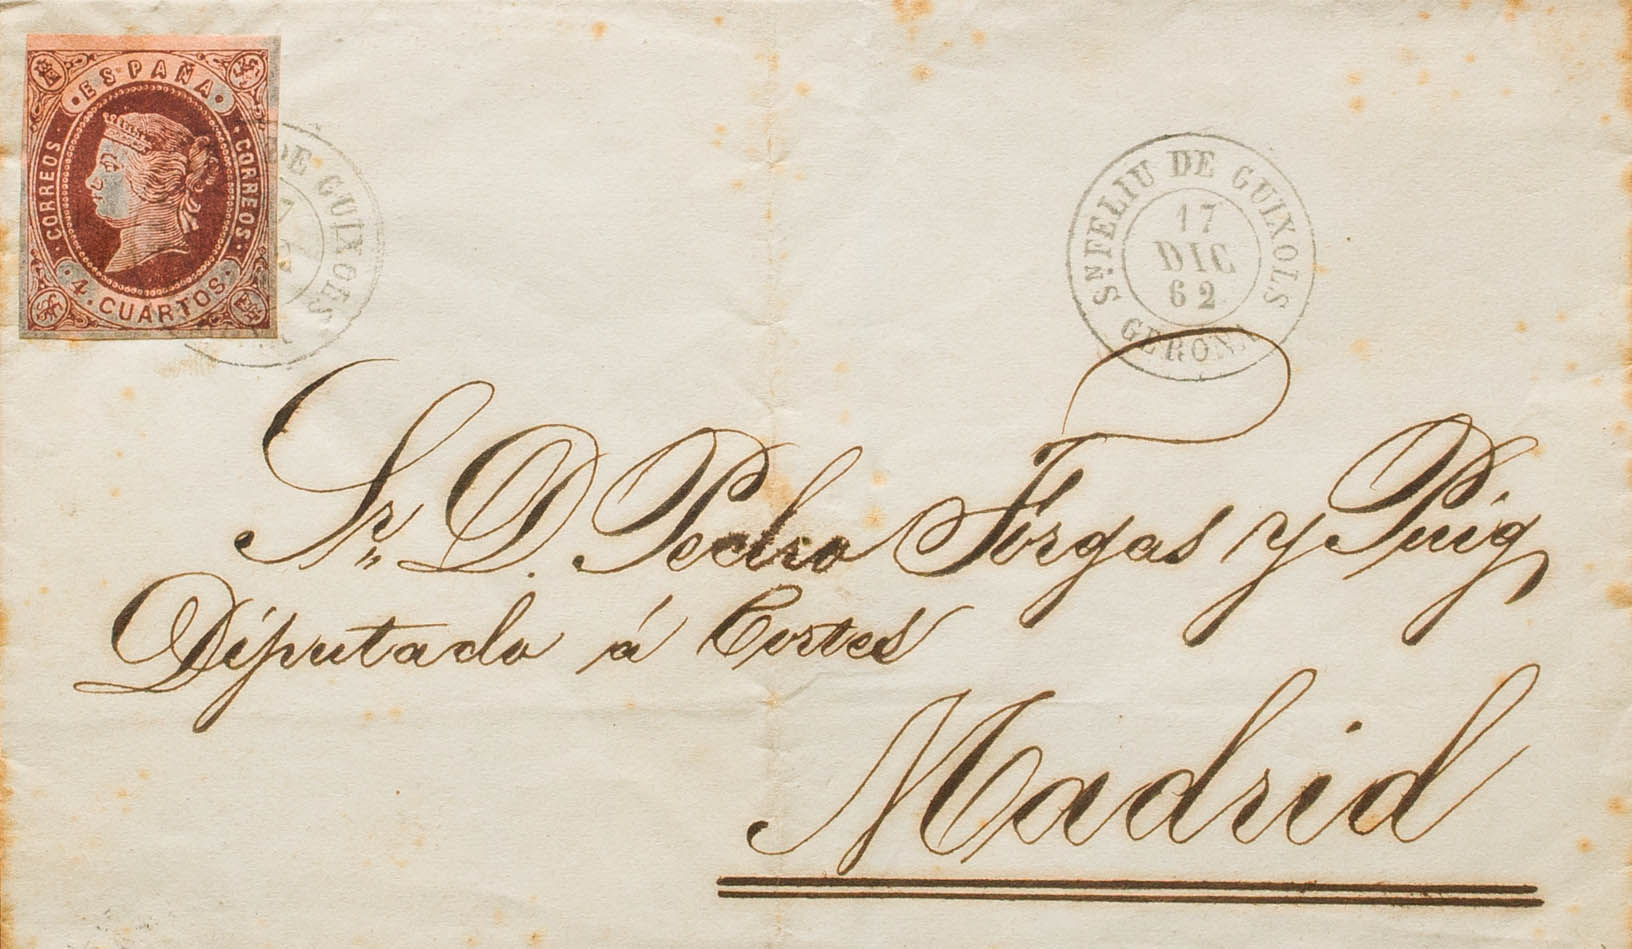 · ESPAÑA ·
CORREOS ·
CORREOS ·
4. CUARTOS
DE GUIXOLS
Sⁿ FELIU DE GUIXOLS
17
DIC
62
GERONA
Sr. D. Pedro Forgas y Puig
Diputado á Cortes
Madrid